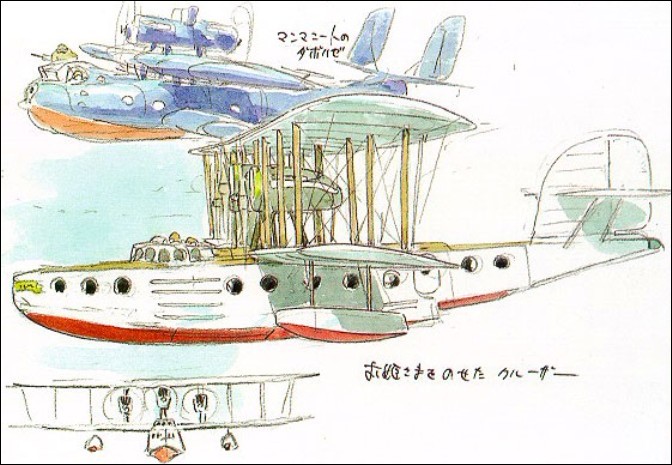 マンマユート団の
ダボハゼ
お姫さまをのせた クルーザー